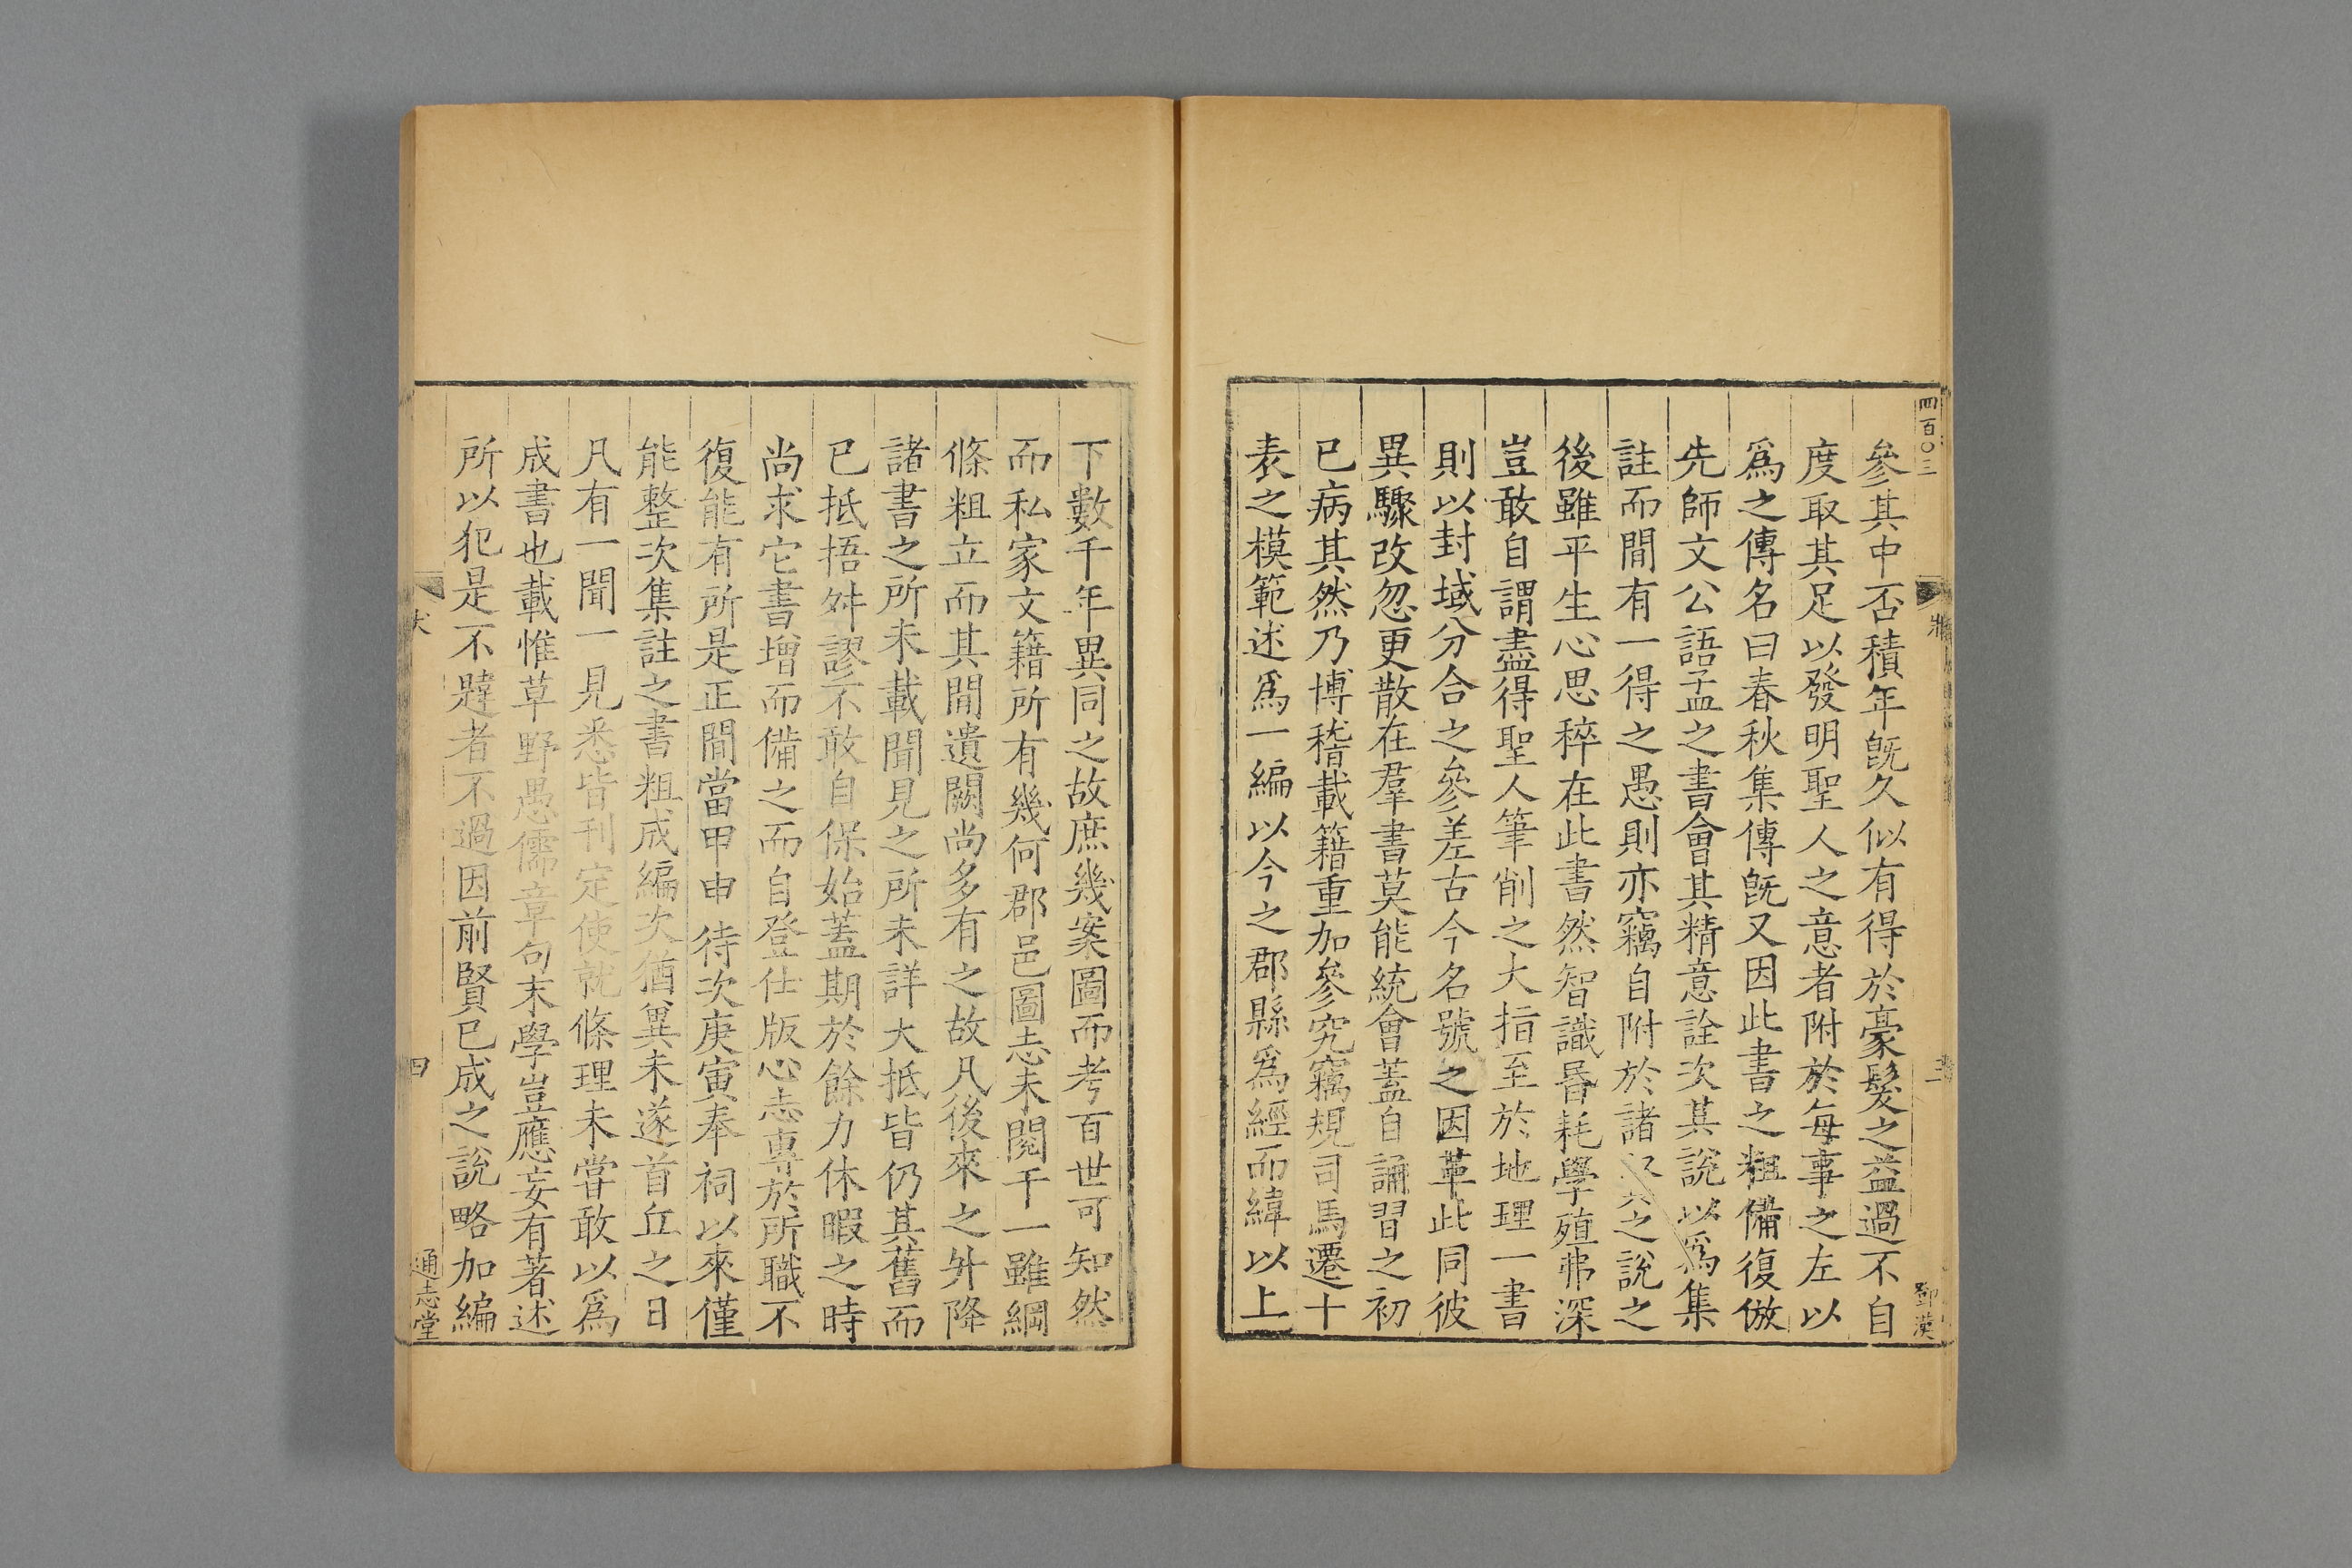 四百〇三
參其中否積年旣久似有得於豪髮之益過不自
度取其足以發明聖人之意者附於每事之左以
爲之傳名曰春秋集傳旣又因此書之粗備復倣
先師文公語孟之書會其精意詮次其說以爲集
註而間有一得之愚則亦竊自附於諸之說之
後雖平生心思稡在此書然智識昬耗學殖弗深
豈敢自謂盡得聖人筆削之大指至於地理一書
則以封域分合之參差古今名號之因革此同彼
異驟改忽更散在羣書莫能統會蓋自誦習之初
已病其然乃博稽載籍重加參究竊規司馬遷十
表之模範述爲一編以今之郡縣爲經而緯以上
鄧漢
下數千年異同之故庶幾案圖而考百世可知然
而私家文籍所有幾何郡邑圖志未閱千一雖綱
條粗立而其間遺闕尚多有之故凡後來之升降
諸書之所未載聞見之所未詳大抵皆仍其舊而
已抵捂舛謬不敢自保始蓋期於餘力休暇之時
尚求它書增而備之而自登仕版心志專於所職不
復能有所是正間當甲申待次庚寅奉祠以來僅
能整次集註之書粗成編次猶異未遂首丘之日
凡有一聞一見悉皆刊定使就條理未嘗敢以爲
成書也載惟草野愚儒章句末學豈應妄有著述
所以犯是不韙者不過因前賢已成之說略加編
四
通志堂